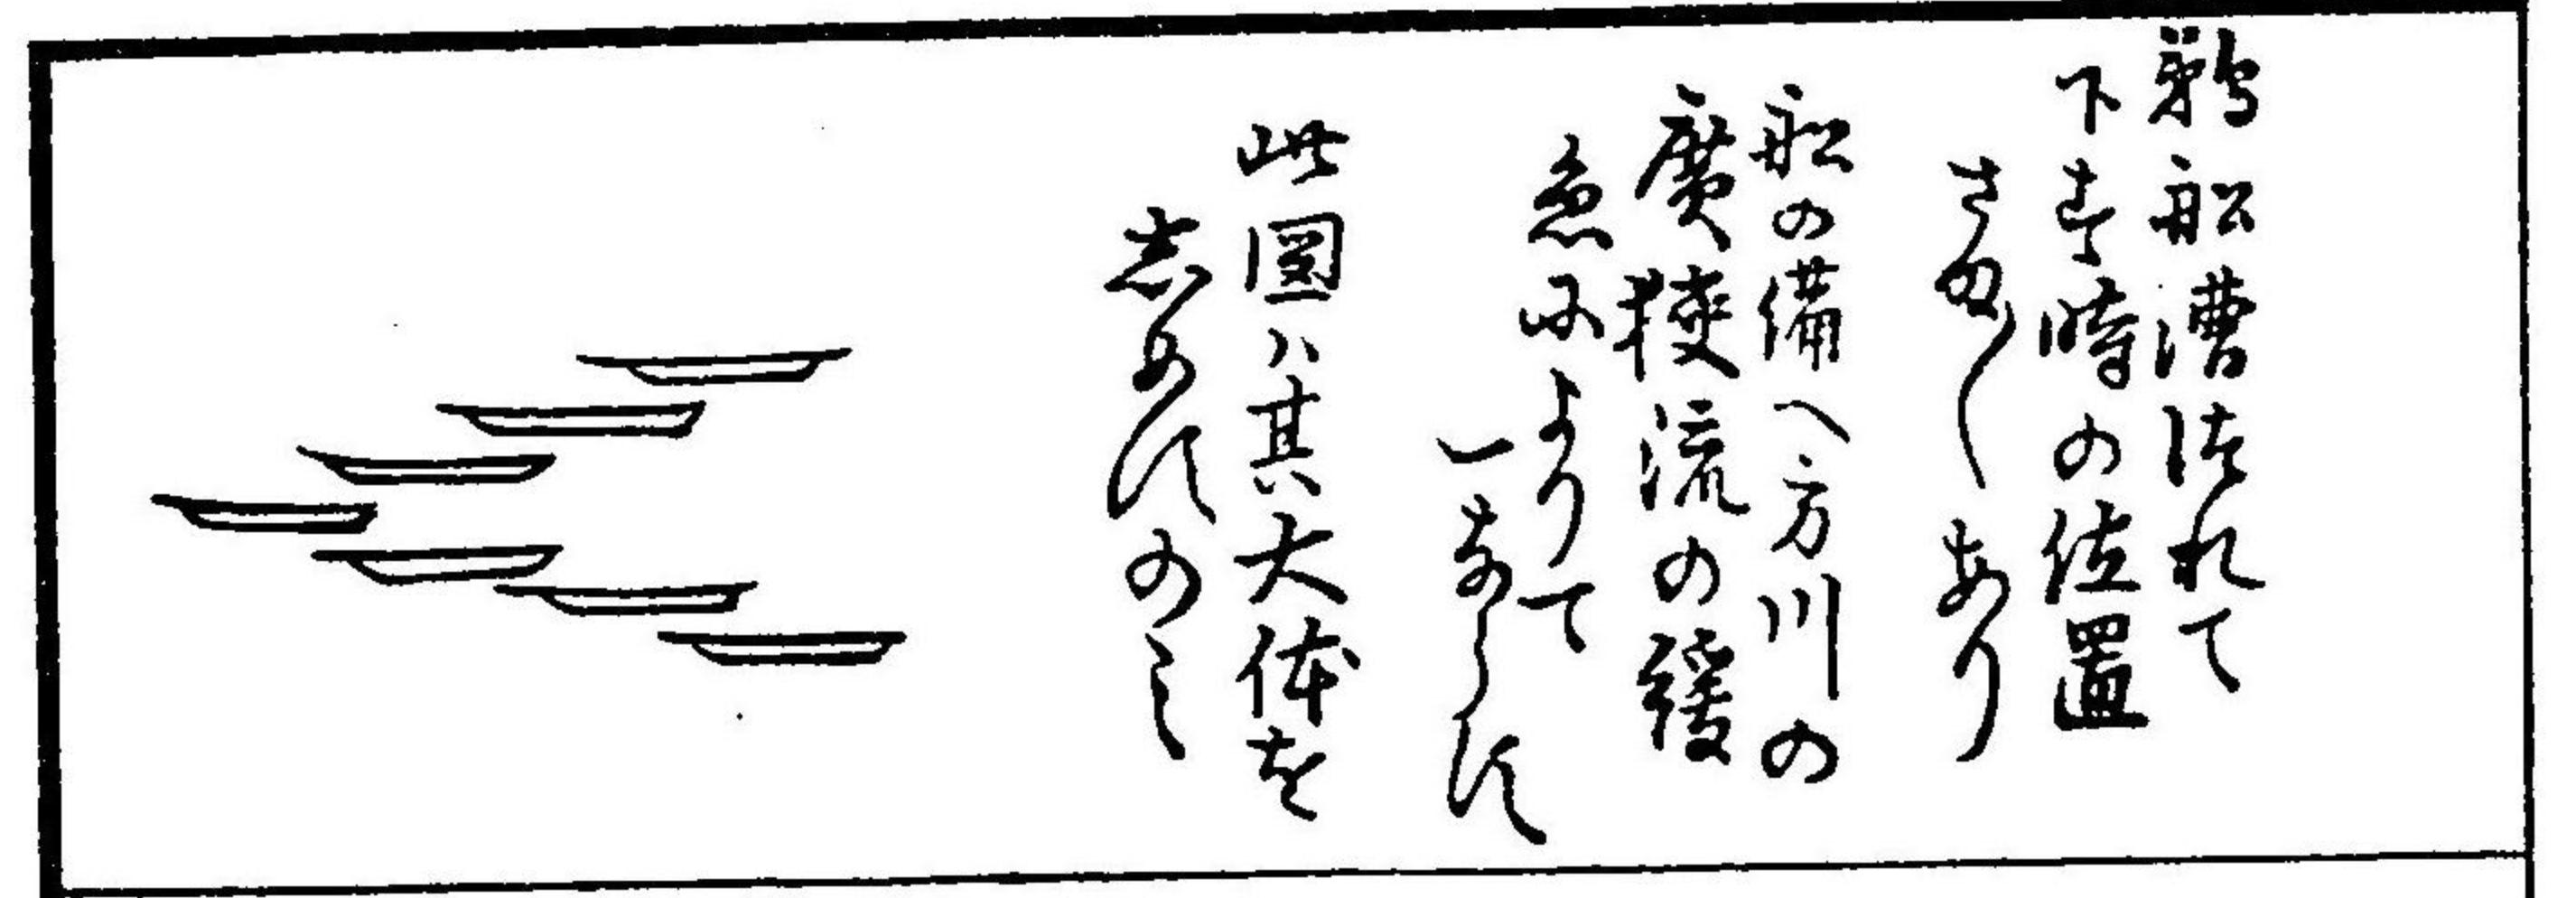 鵜舩漕つれて
下す時の位置
さま〴〵あり
舩の備へ方川の
廣狹流の緩
急によりて
一ならす
此圖ハ其大体を
しめすのみ